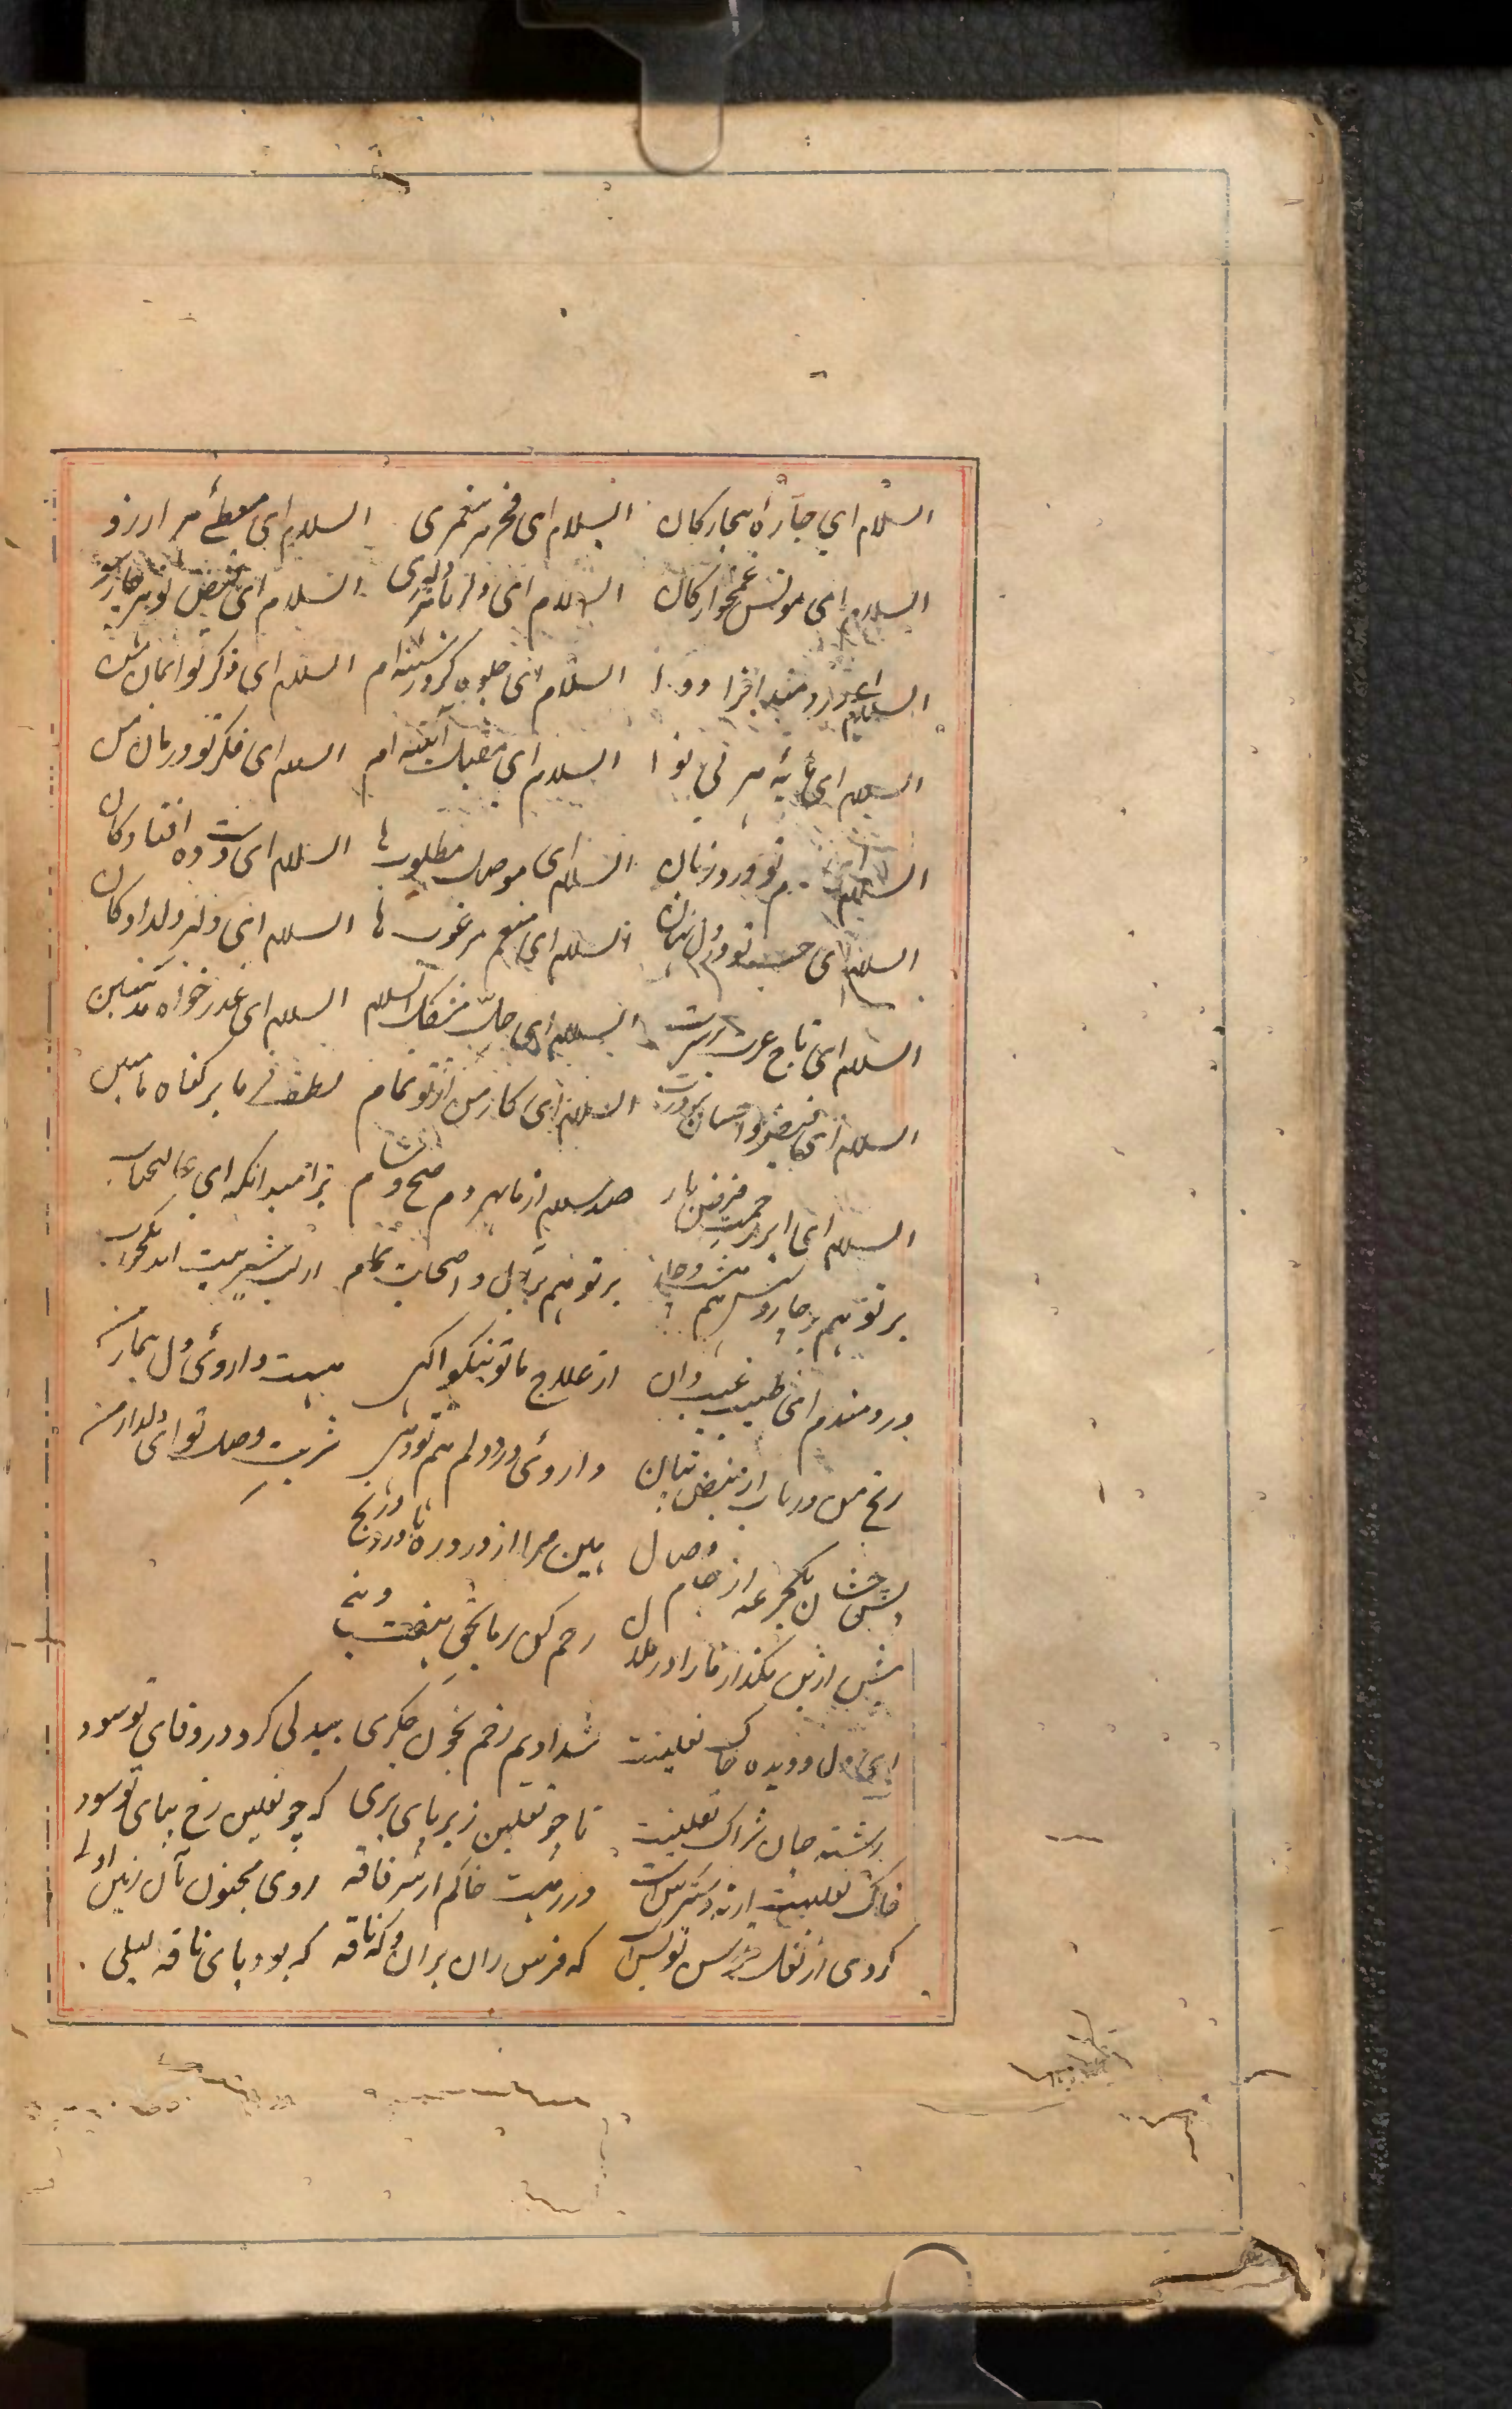 السلام ای چارهٔ بیچارگان السلام ای فخر هر پیغمبری السلام ای معطئ هر ارزو
السلام ای مونس غمخوارگان السلام ای دلربای هر دلبری السلام ای فیض تو هر چارسو
السلام ای دردمندانرا دوا السلام ای جلوه کرد سینه ام السلام ای ذکر تو ایمان من
السلام ای مایهٔ هر بی نوا السلام ای صیقل آئینه ام السلام ای فکر تو درمان من
السلام ای تو ورد زبان السلام ای موصل مطلوب ها السلام ای دست ده افتادگان
السلام ای حب تو در دل نهان السلام ای منعم مرغوب ها السلام ای دلبر دلدادگان
السلام ای تاج عزت بر سرت السلام ای حل مشکل السلام السلام ای عذرخواه مذنبین
السلام ای فیض و احسان پرورت السلام ای کار من از تو تمام لطف فرما بر گناه ما مبین
السلام ای ابر رحمت فیض بار صد سلام از ما بهر دم صبح و شام بر امید آنکه ای عالیجناب
بر تو هم بر چار و شش هم هشت و چار بر تو هم بر آل و اصحابت تمام از لب شیرینت آید یکجواب
دردمندم ای طبیب غیب دان از علاج ما تو نیکو آگهی هست داروئی دل بیمار من
رنج من دریاب از نبض نهان داروئی درد دلم هم تو دهی شربت وصل تو ای دلدار من
یکجرعه از جام وصال بین مرا از درد و رنج
پیش ازین مگذار مارا در ملال رحم کن بر ما بحق پنج
ای دل و دیده خاک نعلینت شد ادیم زخم بخون جگری بیدلی کرد در وفای تو سود
رشته جان شراک نعلینت تا چو نعلین زیر پای بری که چو نعلین رخ بپای تو سود
خاک نعلینت ار دسترس است در رهت خاکم از سر فاقه روی مجنون بآن زمین اولی
گردی از نعل فرس تو بس است که فرس ران بران و که ناقه که بود پای ناقه لیلی